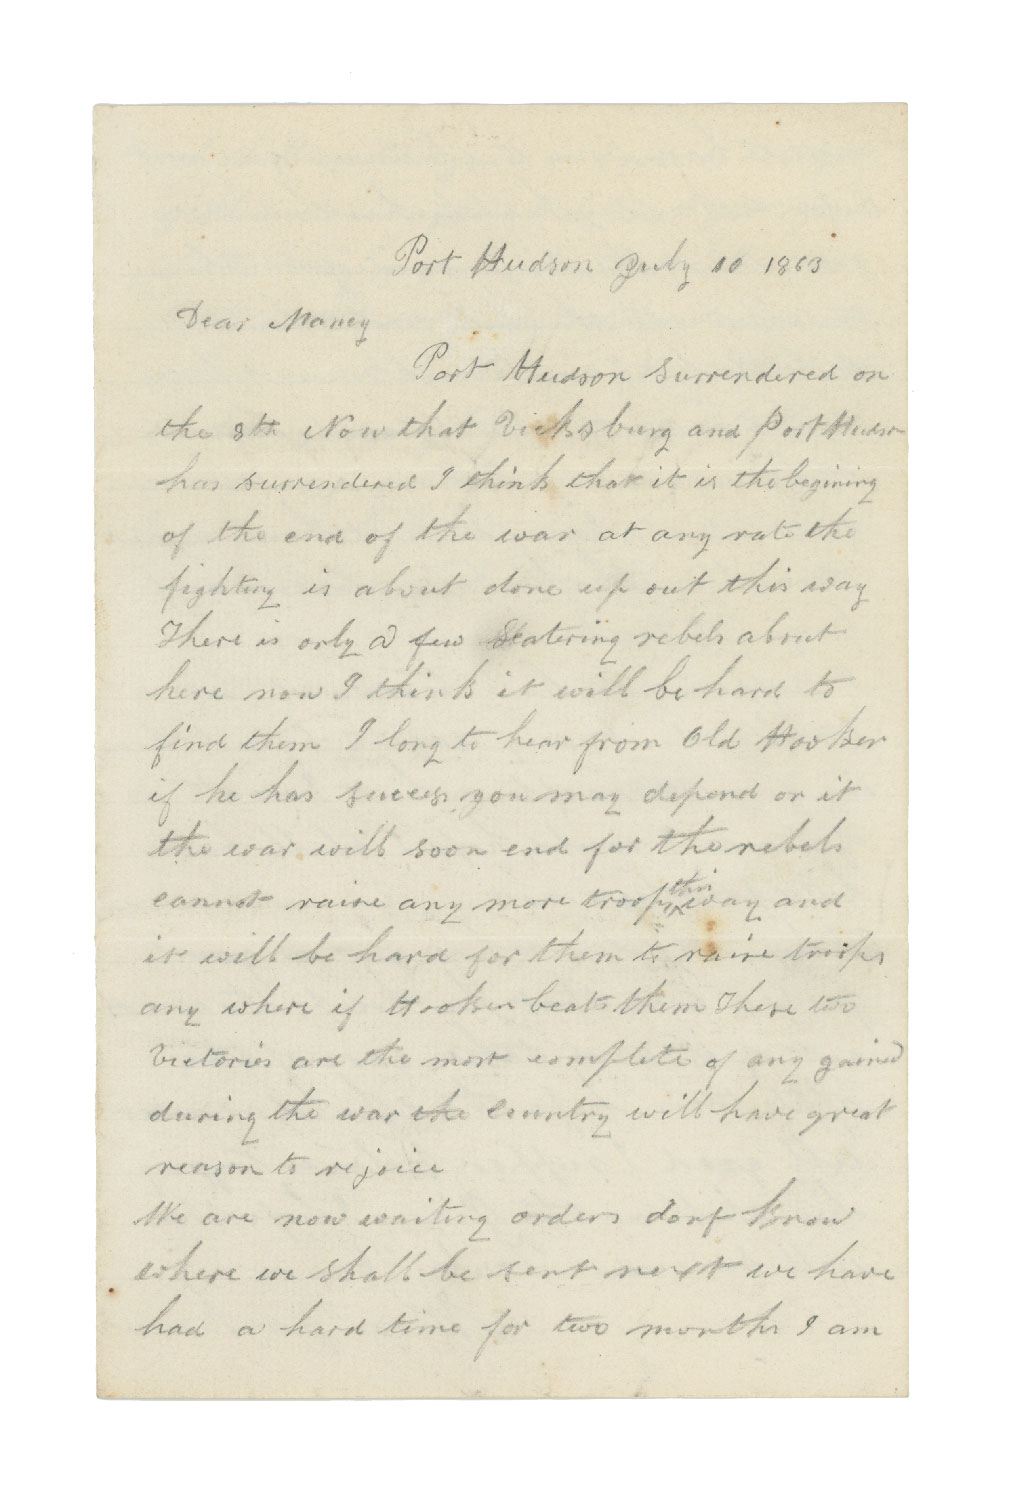 Port Hudson July 10 1863
Dear Maney
Port Hudson surrendered on
the 8th Now that Vicksburg and Port Hudson
has surrendered I think that it is the begining
of the end of the war at any rate the
fighting is about done up out this way
There is only a few Skatering rebels about
here now I think it will be hard to
find them I long to hear from Old Hooker
if he has success you may depend on it
the war will soon end for the rebels
cannot raise any more troops this way and
it will be hard for them to raise troops
any where if Hooker beats them These two
Victories are the most complete of any gained
during the war the Country will have great
reason to rejoice
We are now waiting orders dont know
where we shall be sent next we have
had a hard time for two months I am